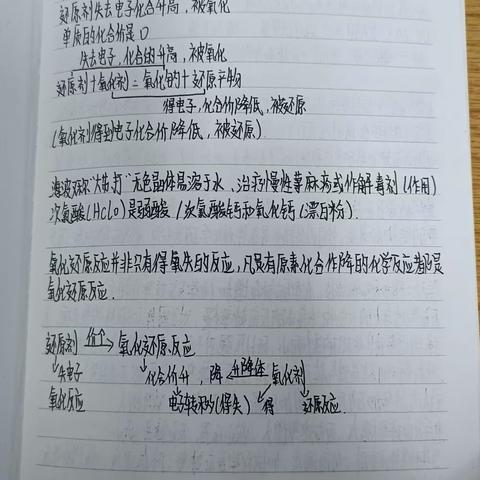 还原剂失去电子化合升高,被氧化
单质的化合价是0
失去电子,化合价升高,被氧化
还原剂+氧化剂=氧化的+还原产物
得电子,化合价降低,被还原
(氧化剂得到电子化合价降低,被还原)
俗称"大苏打"无色晶体易溶于水、治疗慢性荨麻疹或作解毒剂(作用)
次氯酸(HClO)是弱酸/次氯酸钙和氧化钙(漂白粉).
氧化还原反应并非只有得氧失的反应,凡是有原素化合作降的化学反应都是
氧化还原反应.
还原剂 价↑→氧化还原反应
↓失电子 ↓化合价升,降 ←升降体 氧化剂
氧化反应 电子转移(得失) 得 还原反应.